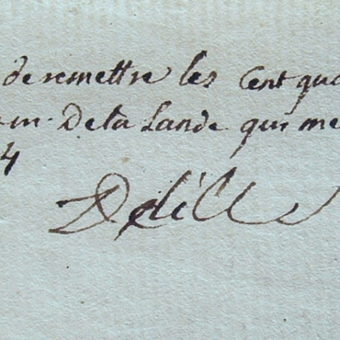 de remettre les Cent qua
m. De la Lande qui me
4
Delille